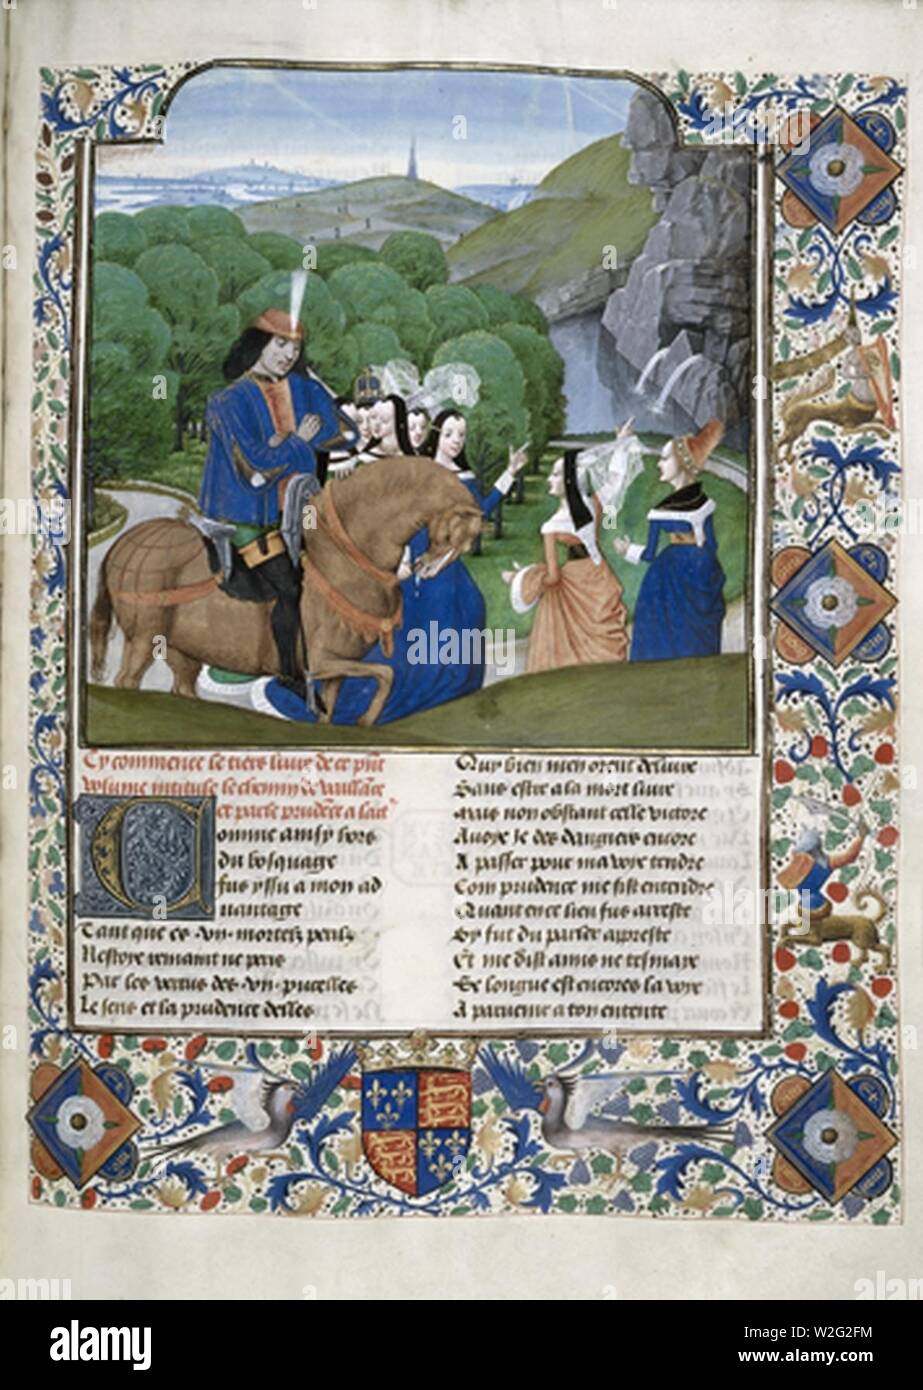 Cy commence le tiers livre de ce pnt
volume intitule le chemin de vaillance
et parle prudece a lact
Comme ainsy hors
du bosquaige
fus yssu a mon ad
uantage
Tant que es .vij. mortelz perilz
Nestoye remaint ne peris
Par les vertus des .vij. pucelles
Le sens et la prudence delles
Quy bien men orent deliure
Sans estre a la mort liure
Mais non obstant celle victore
Auoye je des dangiers encore
A passer pour ma voye tendre
Com prudence me fist entendre
Quant en ce lieu fus arreste
Sy fut du parler appreste
Et me dist amis ne tesmaye
Se longue est encores la voye
A paruenir a ton entente
alamy
Image ID: W2G2FM
www.alamy.com